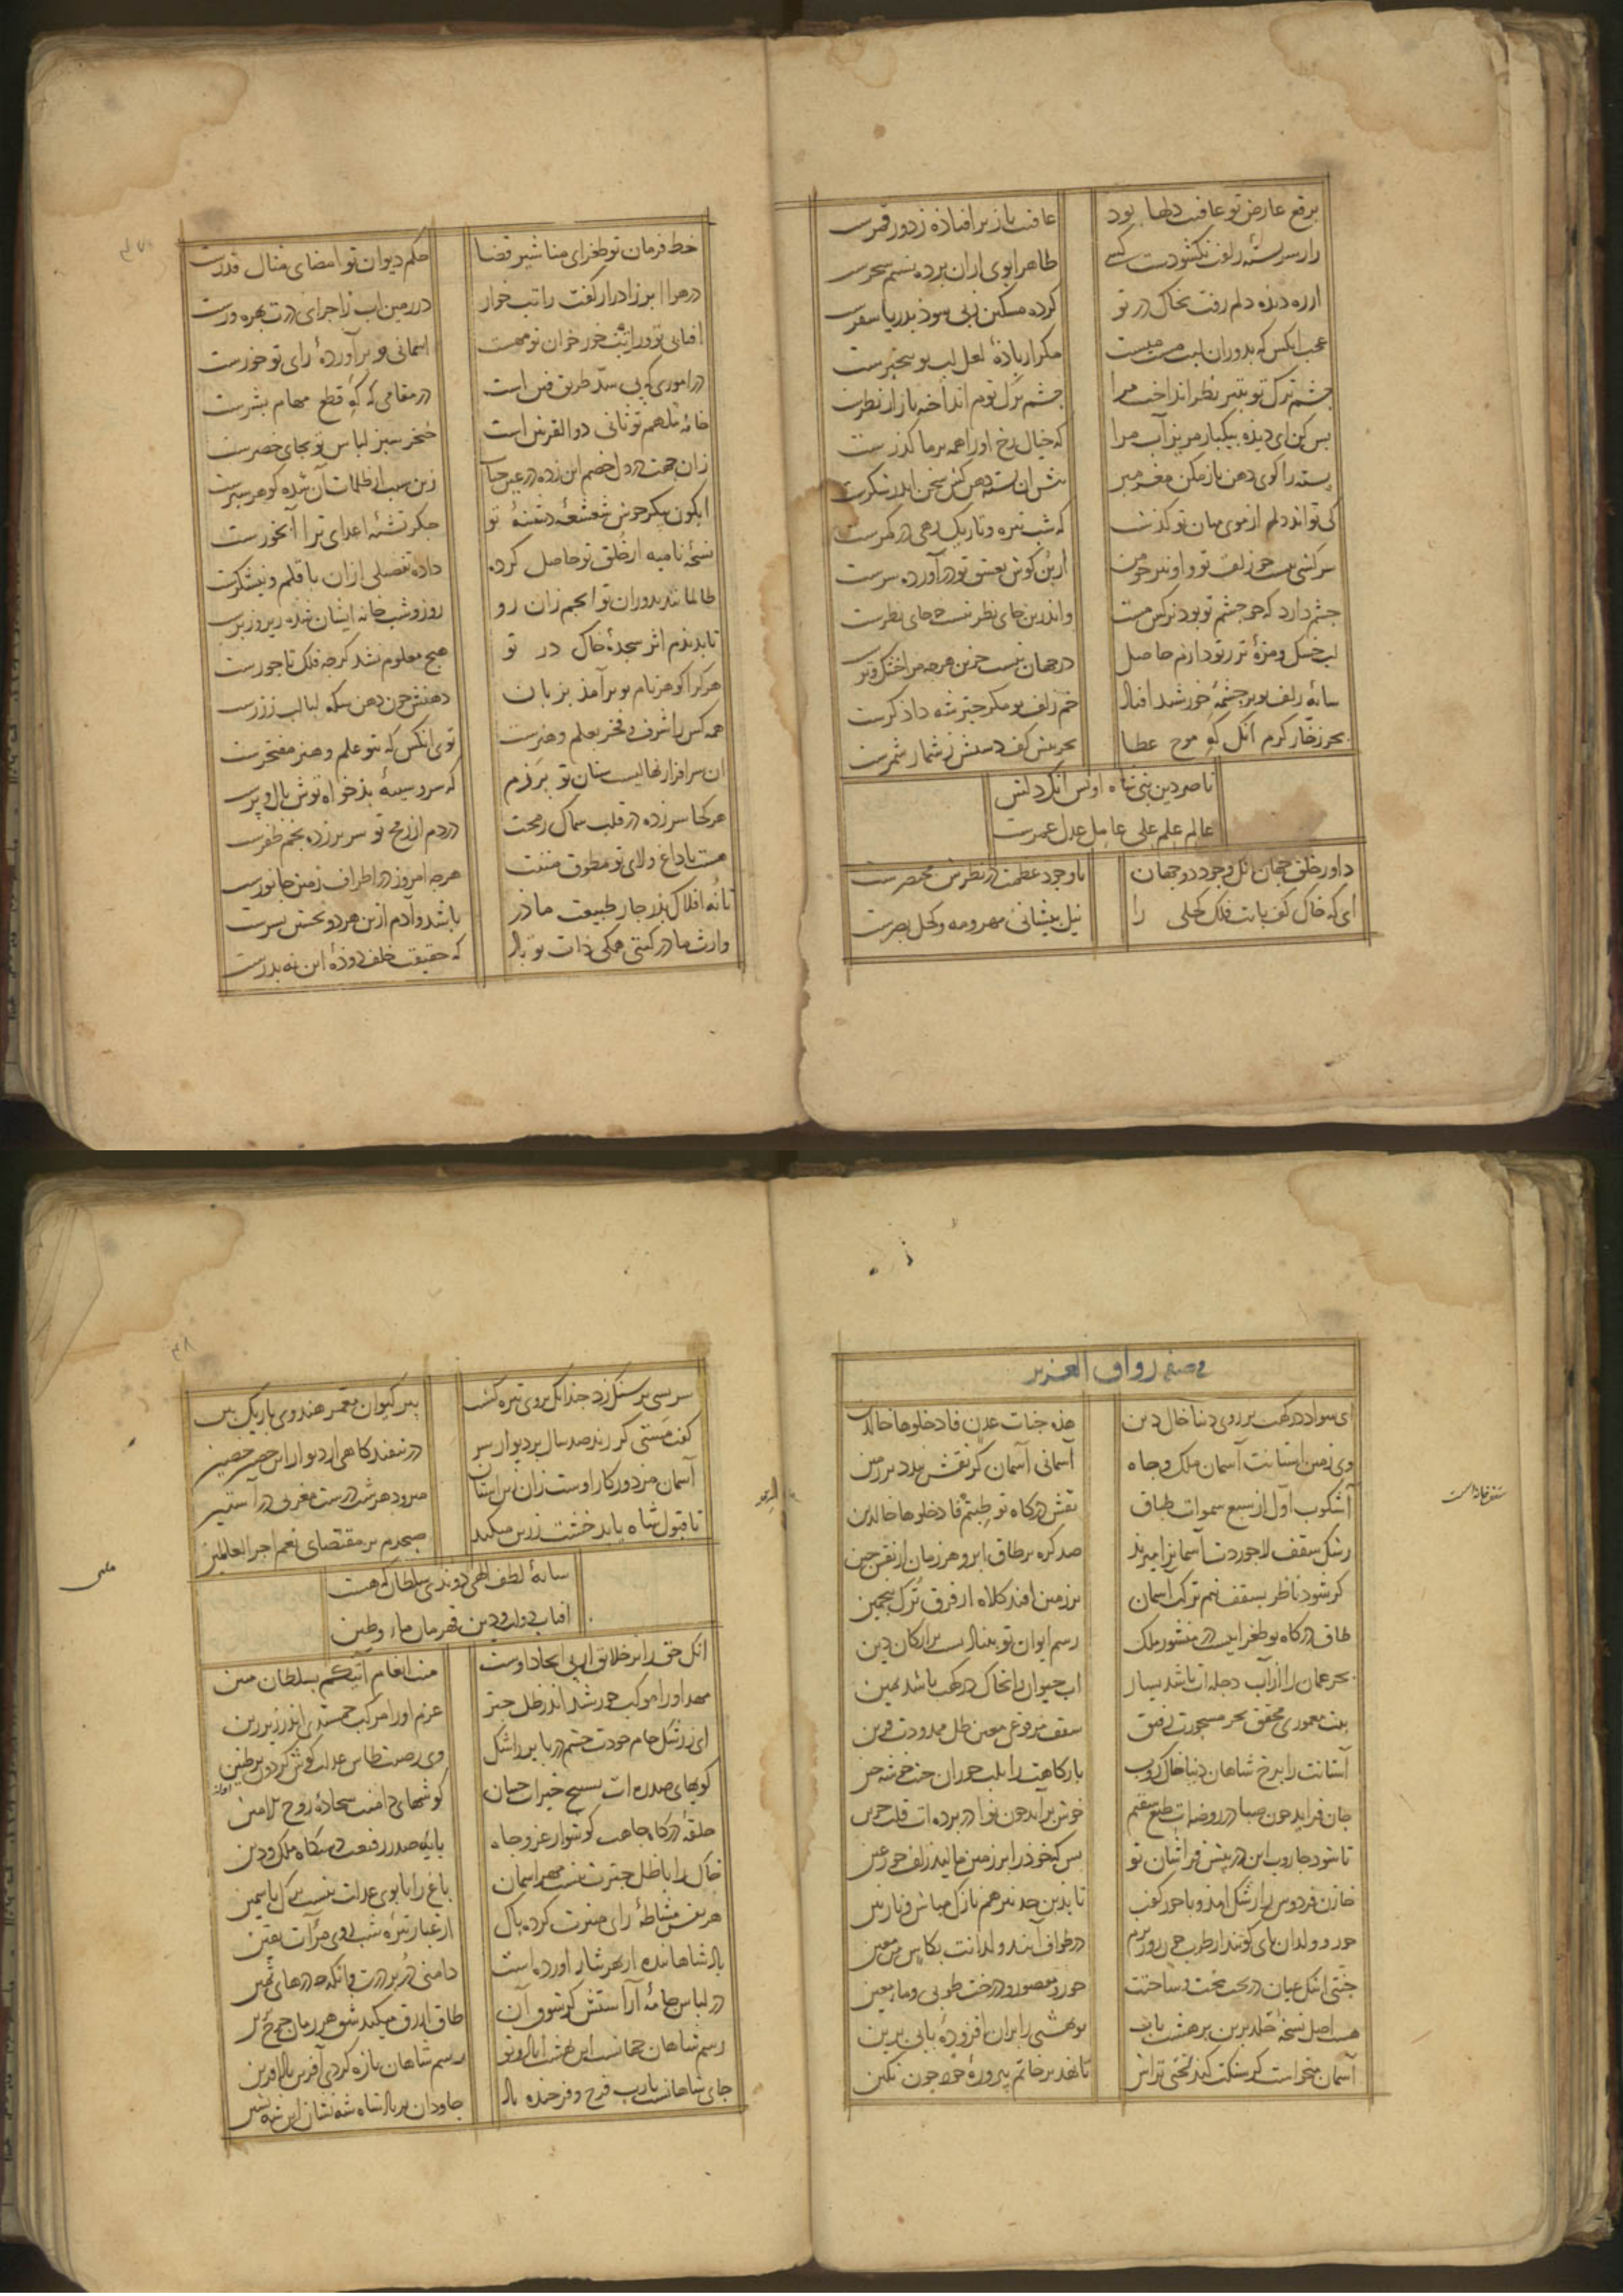 برقع عارض تو عافیت دلها بود
عافیت باز برافتاده ز دور قمرست
را ز سر بسته زلفت نگشودست کسی
ظاهرا بوی ازان برده نسیم سحرست
از ره دیده دلم رفت بخاک در تو
کرده مسکین زپی سود بدریا سفرست
عجب انکس که بدوران لبت مست
مکر از باده لعل لب تو بیخبرست
چشم ترک تو بتیر نظر انداخت مرا
چشم ترک توم انداخته باز از نظرست
بس کن ای دیده بیکبار مریز آب مرا
که خیال رخ او را همه بر ما کذرست
پسته را کوی دهن باز مکن مغز مبر
پیش ان پسته دهن کش سخن اندر شکرست
کی تواند دلم از موی میان تو کذشت
که شب تیره و تاریک رهی در کمرست
سرکشی هست چو زلف تو و او نیز چو من
از بن کوش بعشق تو درآورده سرست
چشم دارد که چو چشم تو بود نرکس مست
واندرین جای نظر نیست چه جای نظرست
لب خشک و مژه تر ز تو دارم حاصل
در جهان نیست جزین هرچه مرا خشک و ترست
سایه زلف تو بر چشمه خورشید افتاد
خم زلف تو مکر چتر شه دادکرست
بحر زخار کرم انک که موج عطا
بحر پیش کف دستش ز شمار شمرست
ناصر دین نبی شاه اویس انک دلش
عالم علم علی عامل عدل عمرست
داور خلق جهان انک وجود دو جهان
با وجود عظمت در نظرش مختصرست
ای که خاک کف پایت فلک کحلی را
نیل پیشانی مهر و مه و کحل بصرست
خط فرمان تو طغرای مناشیر قضا
حکم دیوان تو امضای مثال قدرست
در هوا ابر ز ادرار کفت راتب خوار
در زمین اب ز اجرای درت بهره ورست
افتابی تو و رایت خور خوان تو مهست
اسمانی تو برآورده رای تو خورست
در اموری که پی سد طریق فتن است
در مقامی که که قطع مهام بشرست
خامه ملهم تو ثانی ذو القرنین است
خنجر سبز لباس تو بجای خضرست
زان جهت در دل خصم این زده در عین حیات
زین سبب از ظلمات آن شده کوهر سپرست
ابکون پیکر خوش شعشعه دشنه تو
جکر تشنه اعدای ترا آبخورست
نسخه نامیه از خلق تو حاصل کرده
داده تفصیلی ازان با قلم و نیشکرست
ظالمانند بدوران تو انجم زان رو
روز و شب خانه ایشان شده زیر و زبرست
تا ندیدم اثر سجده خاک در تو
هیچ معلوم نشد کز چه فلک تاجورست
هر کرا کوهر نام تو برآمد بزبان
دهنش چون دهن سکه لبالب ز زرست
همه کس را شرف و فخر بعلم و هنرست
توی انکس که بتو علم و هنر مفتخرست
ان سرافراز نهالیست سنان تو برزم
که سر و سینه بدخواه توش بال و پرست
هر کجا سر زده در قلب سماک رمحت
در دم از رمح تو سر بر زده نجم ظفرست
هست با داغ ولای تو مطوق منت
هرچه امروز در اطراف زمین جانورست
تا نه افلاک پدر چار طبیعت مادر
باشد و آدم ازین هر دو نخستین پسرست
وارث مادر کیتی همکی ذات تو باد
که حقیقت خلف دوده این نه پدرست
فی صفة رواق العزیز
ای سواد درکهت بر روی دنیا خال دین
هذه جنات عدن فادخلوها خالدین
وی زمین استانت آسمان ملک و جاه
آسمانی آسمان کر نقش بندد بر زمین
آشکوب اول از سبع سموات طباق
نقش درکاه تو طبتم فادخلوها خالدین
رشک سقف لاجوردت آسمانرا میزند
صد کره بر طاق ابرو هر زمان از نقش چین
کر شود ناظر بسقف نیم ترک اسمان
بر زمین افتد کلاه از فرق ترک پنجمین
طاق درکاه تو طغراییست در منشور ملک
رسم ایوان تو بنیادیست بر ارکان دین
بحر عمان را از آب دجله ات باشد یسار
اب حیوان را بخاک درکهت باشد یمین
بیت معموری بتحقیق بحر مسجورت رفیق
سقف مرفوعی معین ظل ممدودت قرین
آستانت را برخ شاهان دنیا خاک روب
بارکاهت را بلب حوران جنت خوشه چین
جان فزاید چون صبا در روضه ات طبع سقیم
خوش برآید چون نوا در پرده ات قلب حزین
تا شود جاروب این در پیش فراشان تو
بس که خود را بر زمین مالید زلف حور عین
خازن فردوس را رشک امد و با حور کفت
تا بدین حد نیز هم نازک مباش و نازنین
حور و ولدان پای کوبند از طرب چون روز بزم
در طواف آیند ولدانت بکاس من معین
جنتی اینک عیان در تحت تخت و ساحتت
حور و مقصور و درخت طوبی و ماء معین
هست اصل نسخه خلد برین بر هشت باب
تو بهشتی را بران افزوده بابی برین
آسمان میخواست کز سنکت کند لختی تراش
تا نهد بر خاتم پیروزه خود چون نکین
سر بسی بر سنک زد چندانک روی تیره کشت
پیر کیوان معمر هندوی باریک بین
کفت مشتی کر زند صد سال بر دیوار سر
در نیفتد کاهی از دیوار این حصن حصین
آسمان مزدور کار اوست زان این استان
میرود هر شب درست مغربی در آستین
تا قبول شاه یابد خشت زرین میکند
صبحدم بر مقتضای نعم اجر العاملین
سایه لطف الهی دوندی سلطان که هست
افتاب دولت و دین قهرمان ماء و طین
انک حق را بر خلایق از پی ایجاد اوست
منت انعام آتیکم بسلطان مبین
مهد او را موکب خورشید اندر ظل چتر
عزم او را مرکب جمشید اندر زیر زین
ای ز رشک جام جودت چشم دریا پر ز اشک
وی ز صیت طاس عدلت کوش کردون پر طنین
کویهای صدره ات تسبیح خیرات حسان
کوشهای دامنت سجاده روح الامین
حلقه درکاه جاهت کوشوار عز و جاه
پایه صدر رفیعت دستکاه ملک و دین
خاک را با ظل چترت نیست مهر اسمان
باغ را با بوی عدلت نیست میل یاسمین
هر نفس مشاطه رای منیرت کرده پاک
از غبار تیره شب روی مرآت یقین
در لباس جامه آراستش کر شود آن
طاق ازرق میکند شق هر زمان چرخ برین
رسم شاهان جهانست این بهشت اباد و تو
رسم شاهان تازه کردی آفرین باد آفرین
جای شاهانست یا رب فرخ و فرخنده باد
جاودان بر پادشاه شه نشان این شه نشین